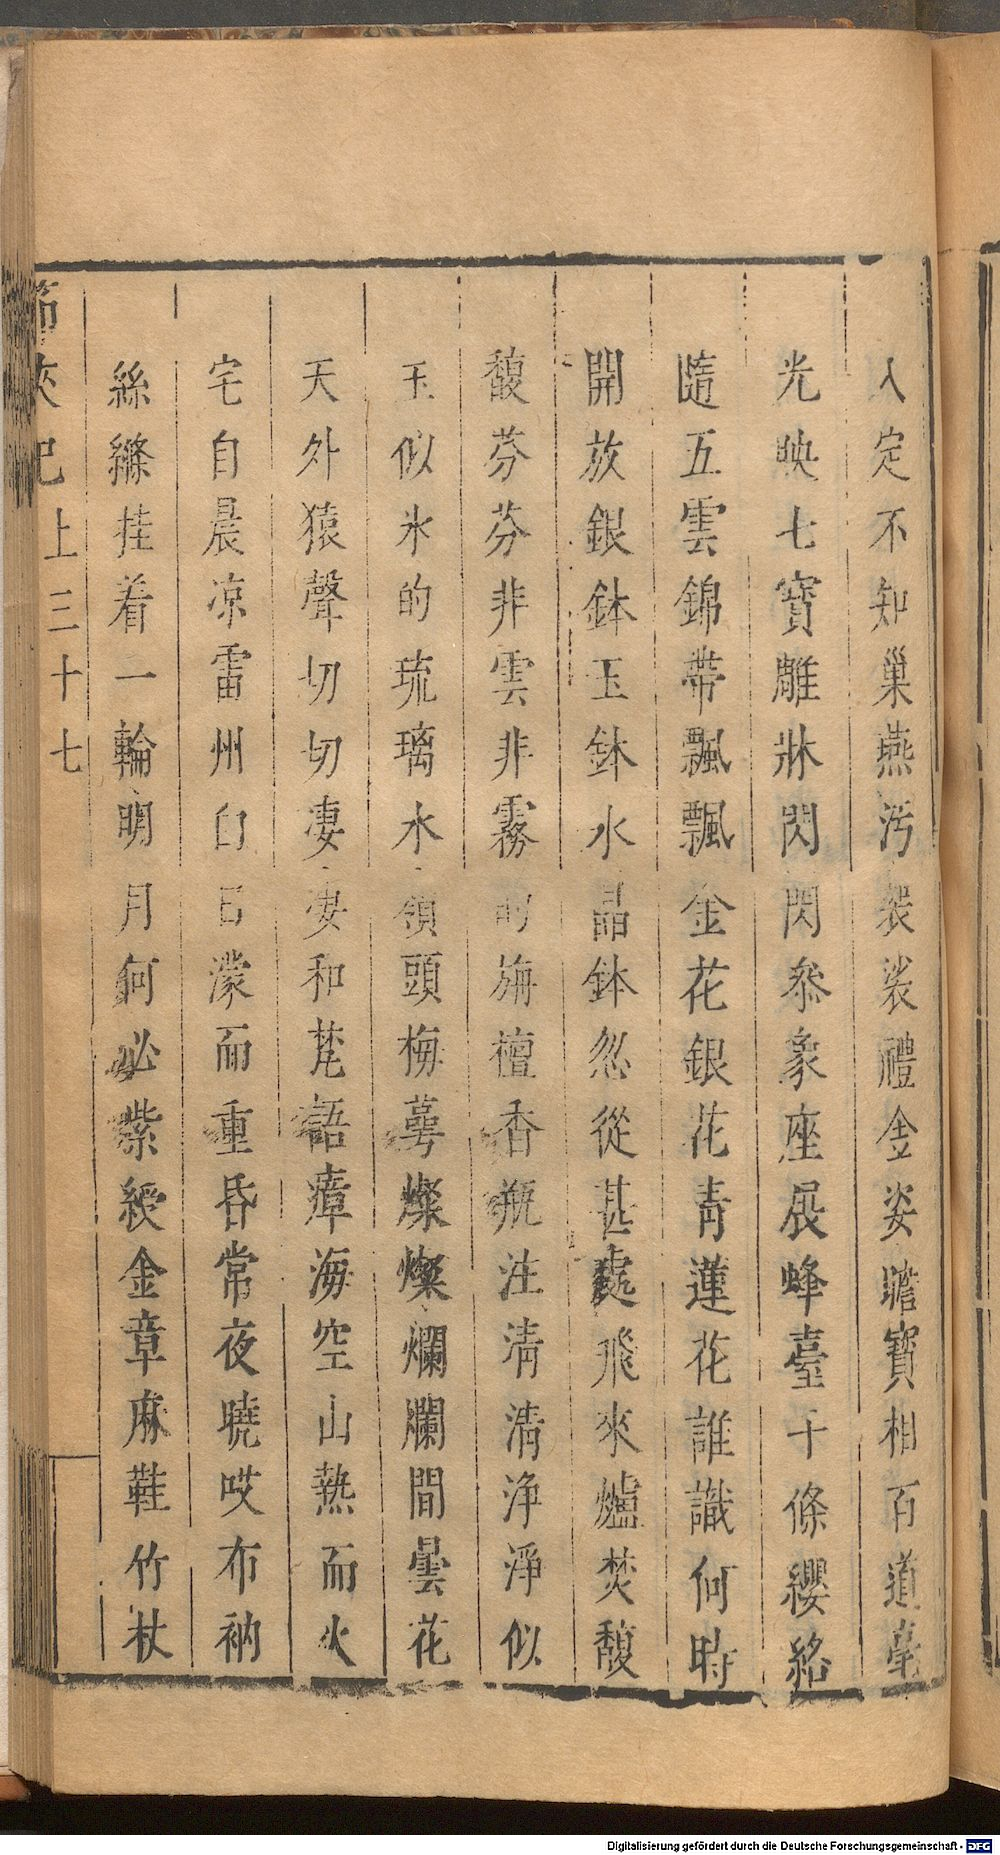 入定不知巢燕汚袈裟禮金姿瞻寶相百道毫
光映七寶雕牀閃閃叅象座展蜂臺千條纓絡
隨五雲錦帶飄飄金花銀花青蓮花誰識何時
開放銀鉢玉鉢水晶鉢忽從甚處飛來爐焚馥
馥芬芬非雲非霧的旃檀香瓶注清清淨淨似
玉似氷的琉璃水嶺頭梅萼燦燦爛爛間曇花
天外猿聲切切凄凄和梵語瘴海空山熱而火
宅自晨凉雷州白日濛而重昏常夜曉哎布衲
絲縧挂着一輪明月何必紫綬金章麻鞋竹杖
節俠記上三十七
Digitalisierung gefördert durch die Deutsche Forschungsgemeinschaft - DFG